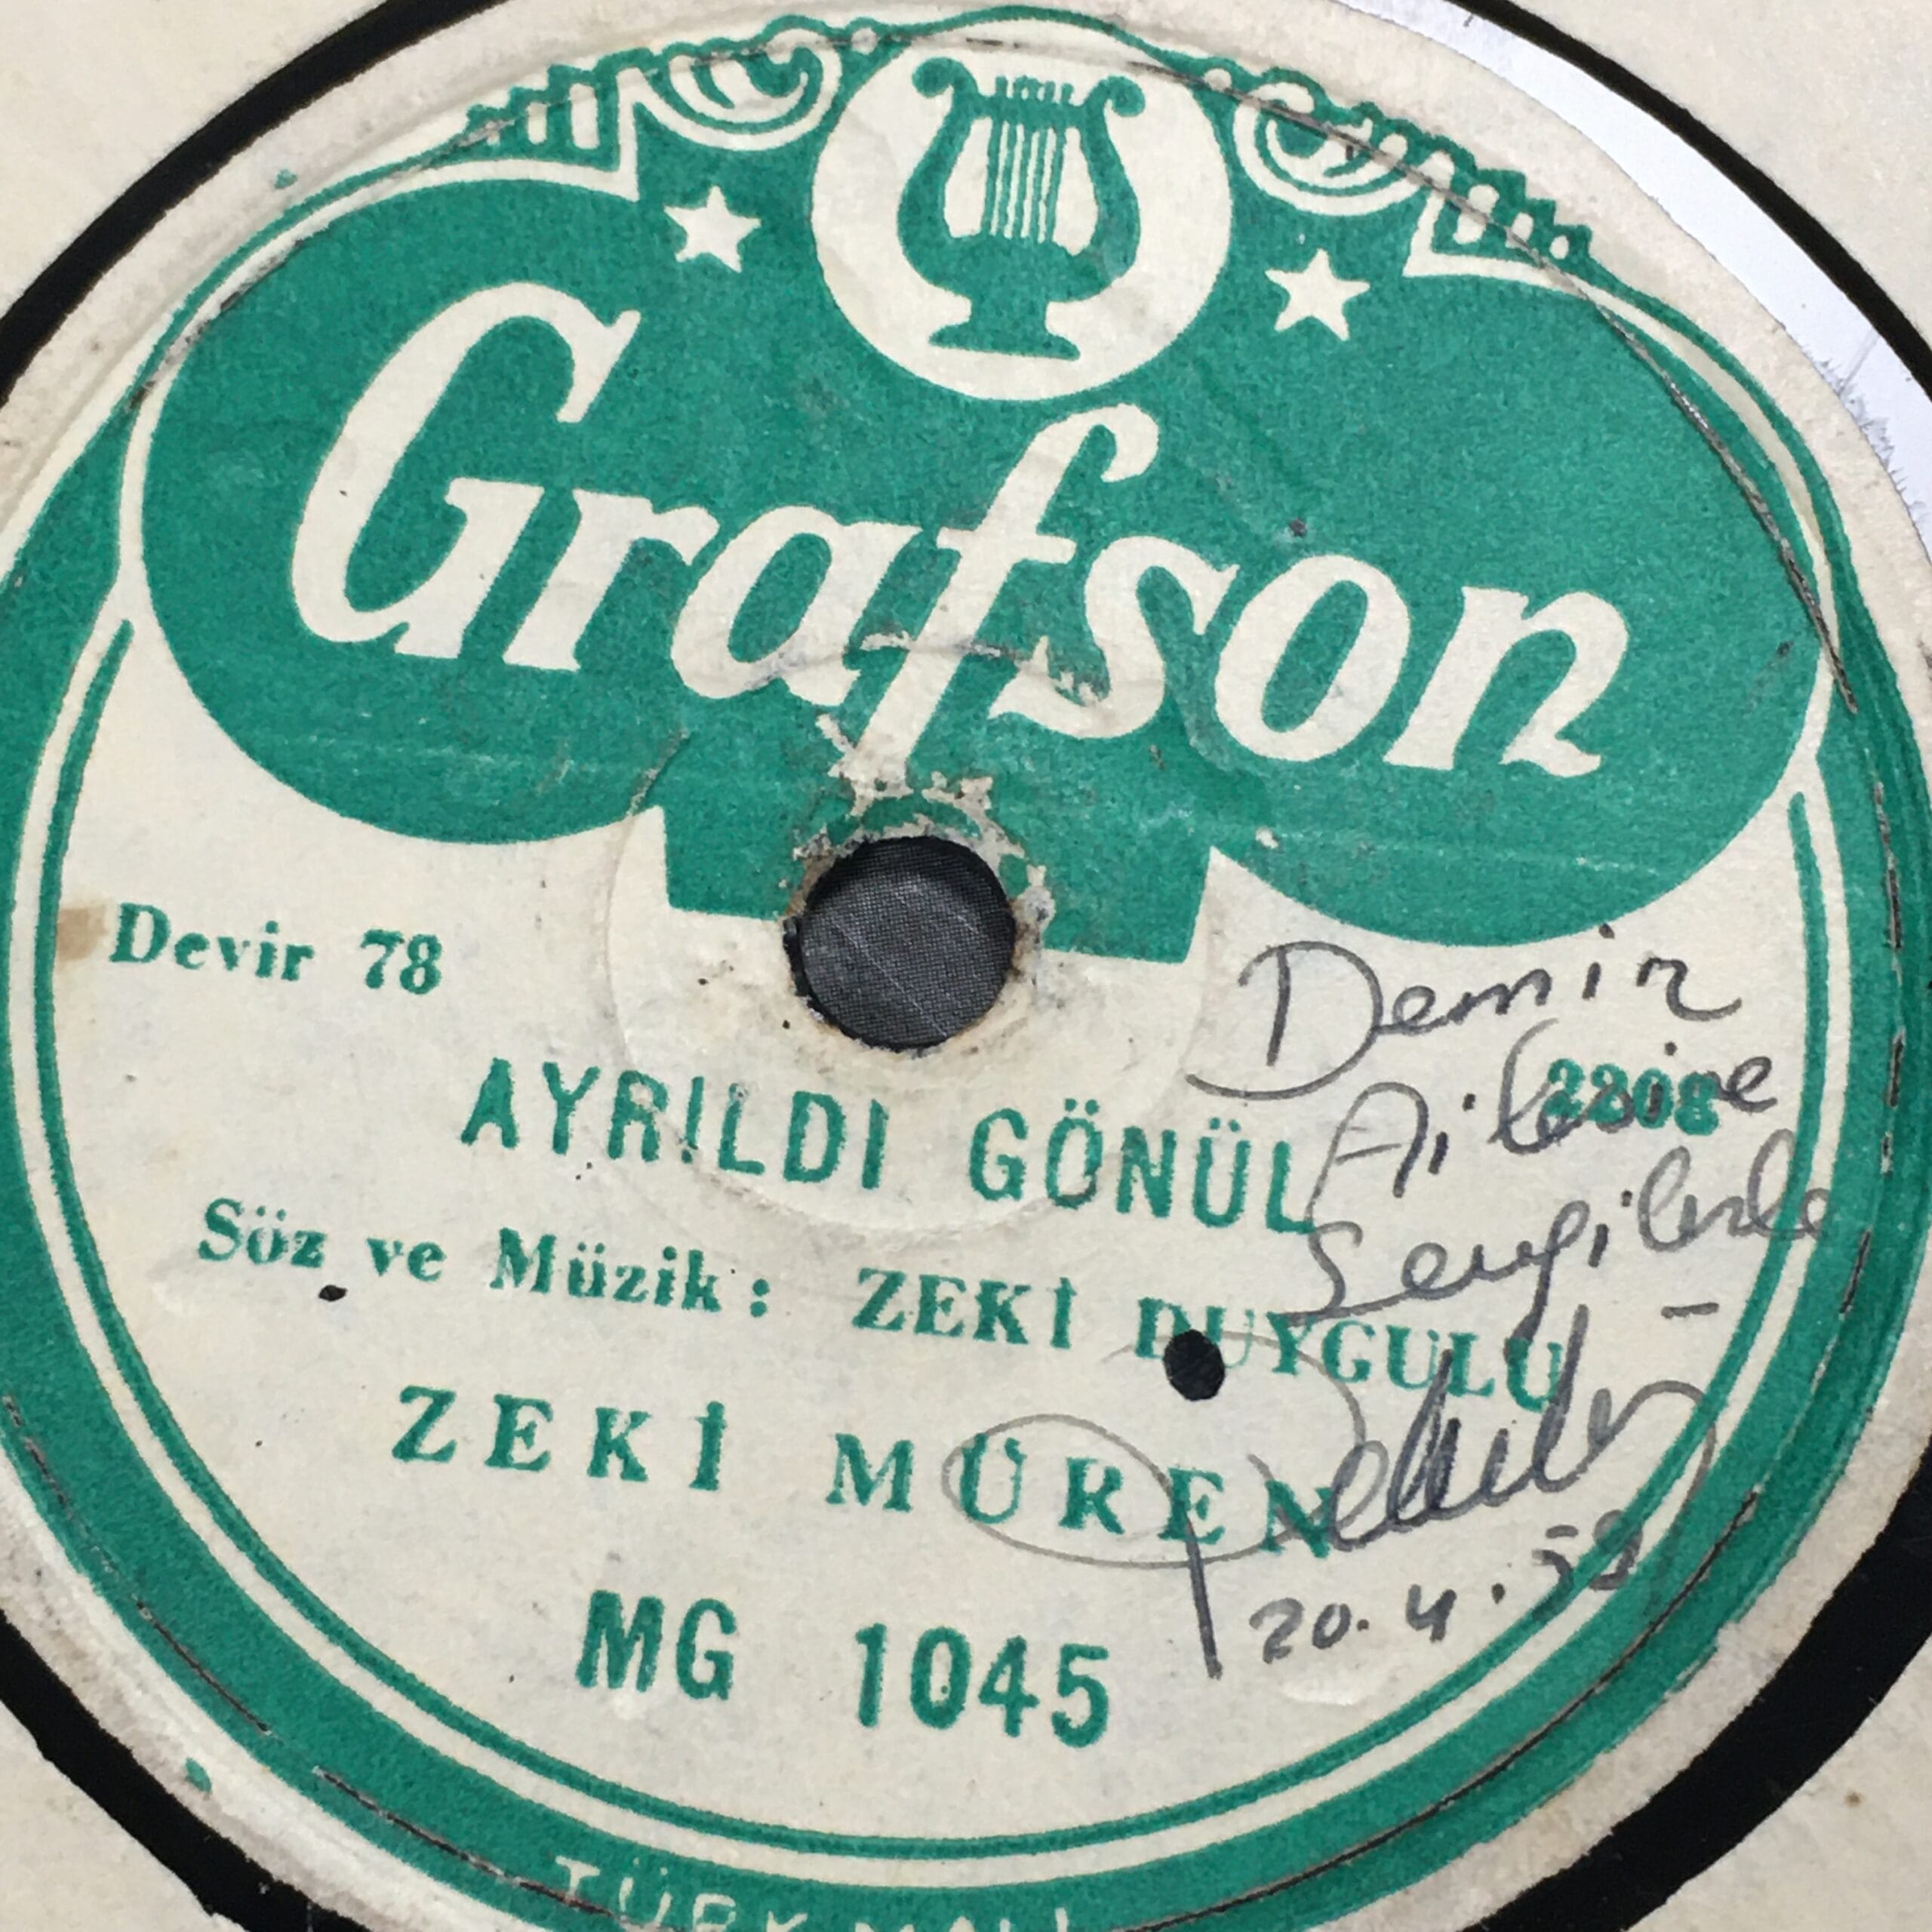 Grafson
Devir 78
Demir
Ailesine
2208
AYRILDI GÖNÜL
Sevgilerle
Söz ve Müzik: ZEKİ DUYGULU
ZEKİ MÜREN
20.4.59
MG 1045
TÜRK MALI